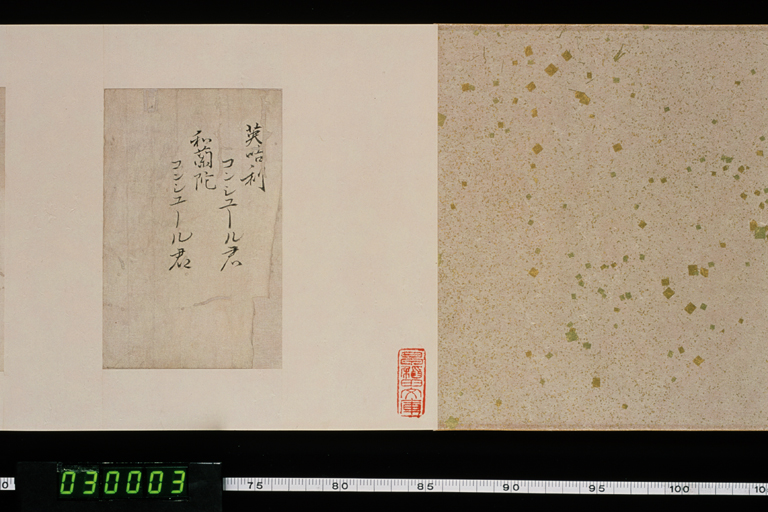 英咭利
コンシユール君
和蘭陀
コンシユール君
030003
75 80 85 90 95 100